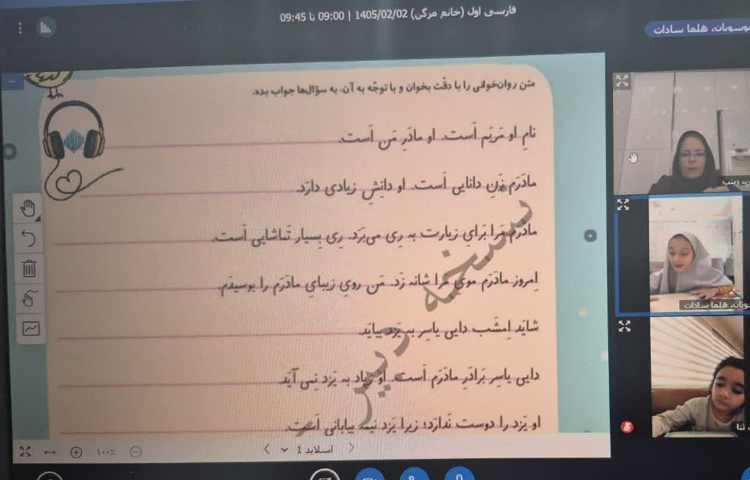 فارسی اول (خانم مرگی) 1405/02/02 | 09:00 تا 09:45
موسویان، هلما سادات
متن روان‌خوانی را با دقّت بخوان و با توجّه به آن، به سؤال‌ها جواب بده.
نامِ او مَریَم اَست. او مادَرِ مَن اَست.
مادَرَم زَنِ دانایی اَست. او دانِشِ زیادی دارَد.
مادَرَم مَرا بَرایِ زیارت به رِی می‌بَرَد. رِی بِسیار تَماشایی اَست.
اِمروز مادَرَم مویِ مَرا شانه زَد. مَن رویِ زیبایِ مادَرَم را بوسیدَم.
شایَد اِمشَب دایی یاسِر به یَزد بیایَد.
دایی یاسِر بَرادَرِ مادَرَم اَست. او زیاد به یَزد نِمی آیَد.
او یَزد را دوست نَدارَد؛ زیرا یَزد نیمه بیابانی اَست.
۱۰۰٪
اسلاید 1